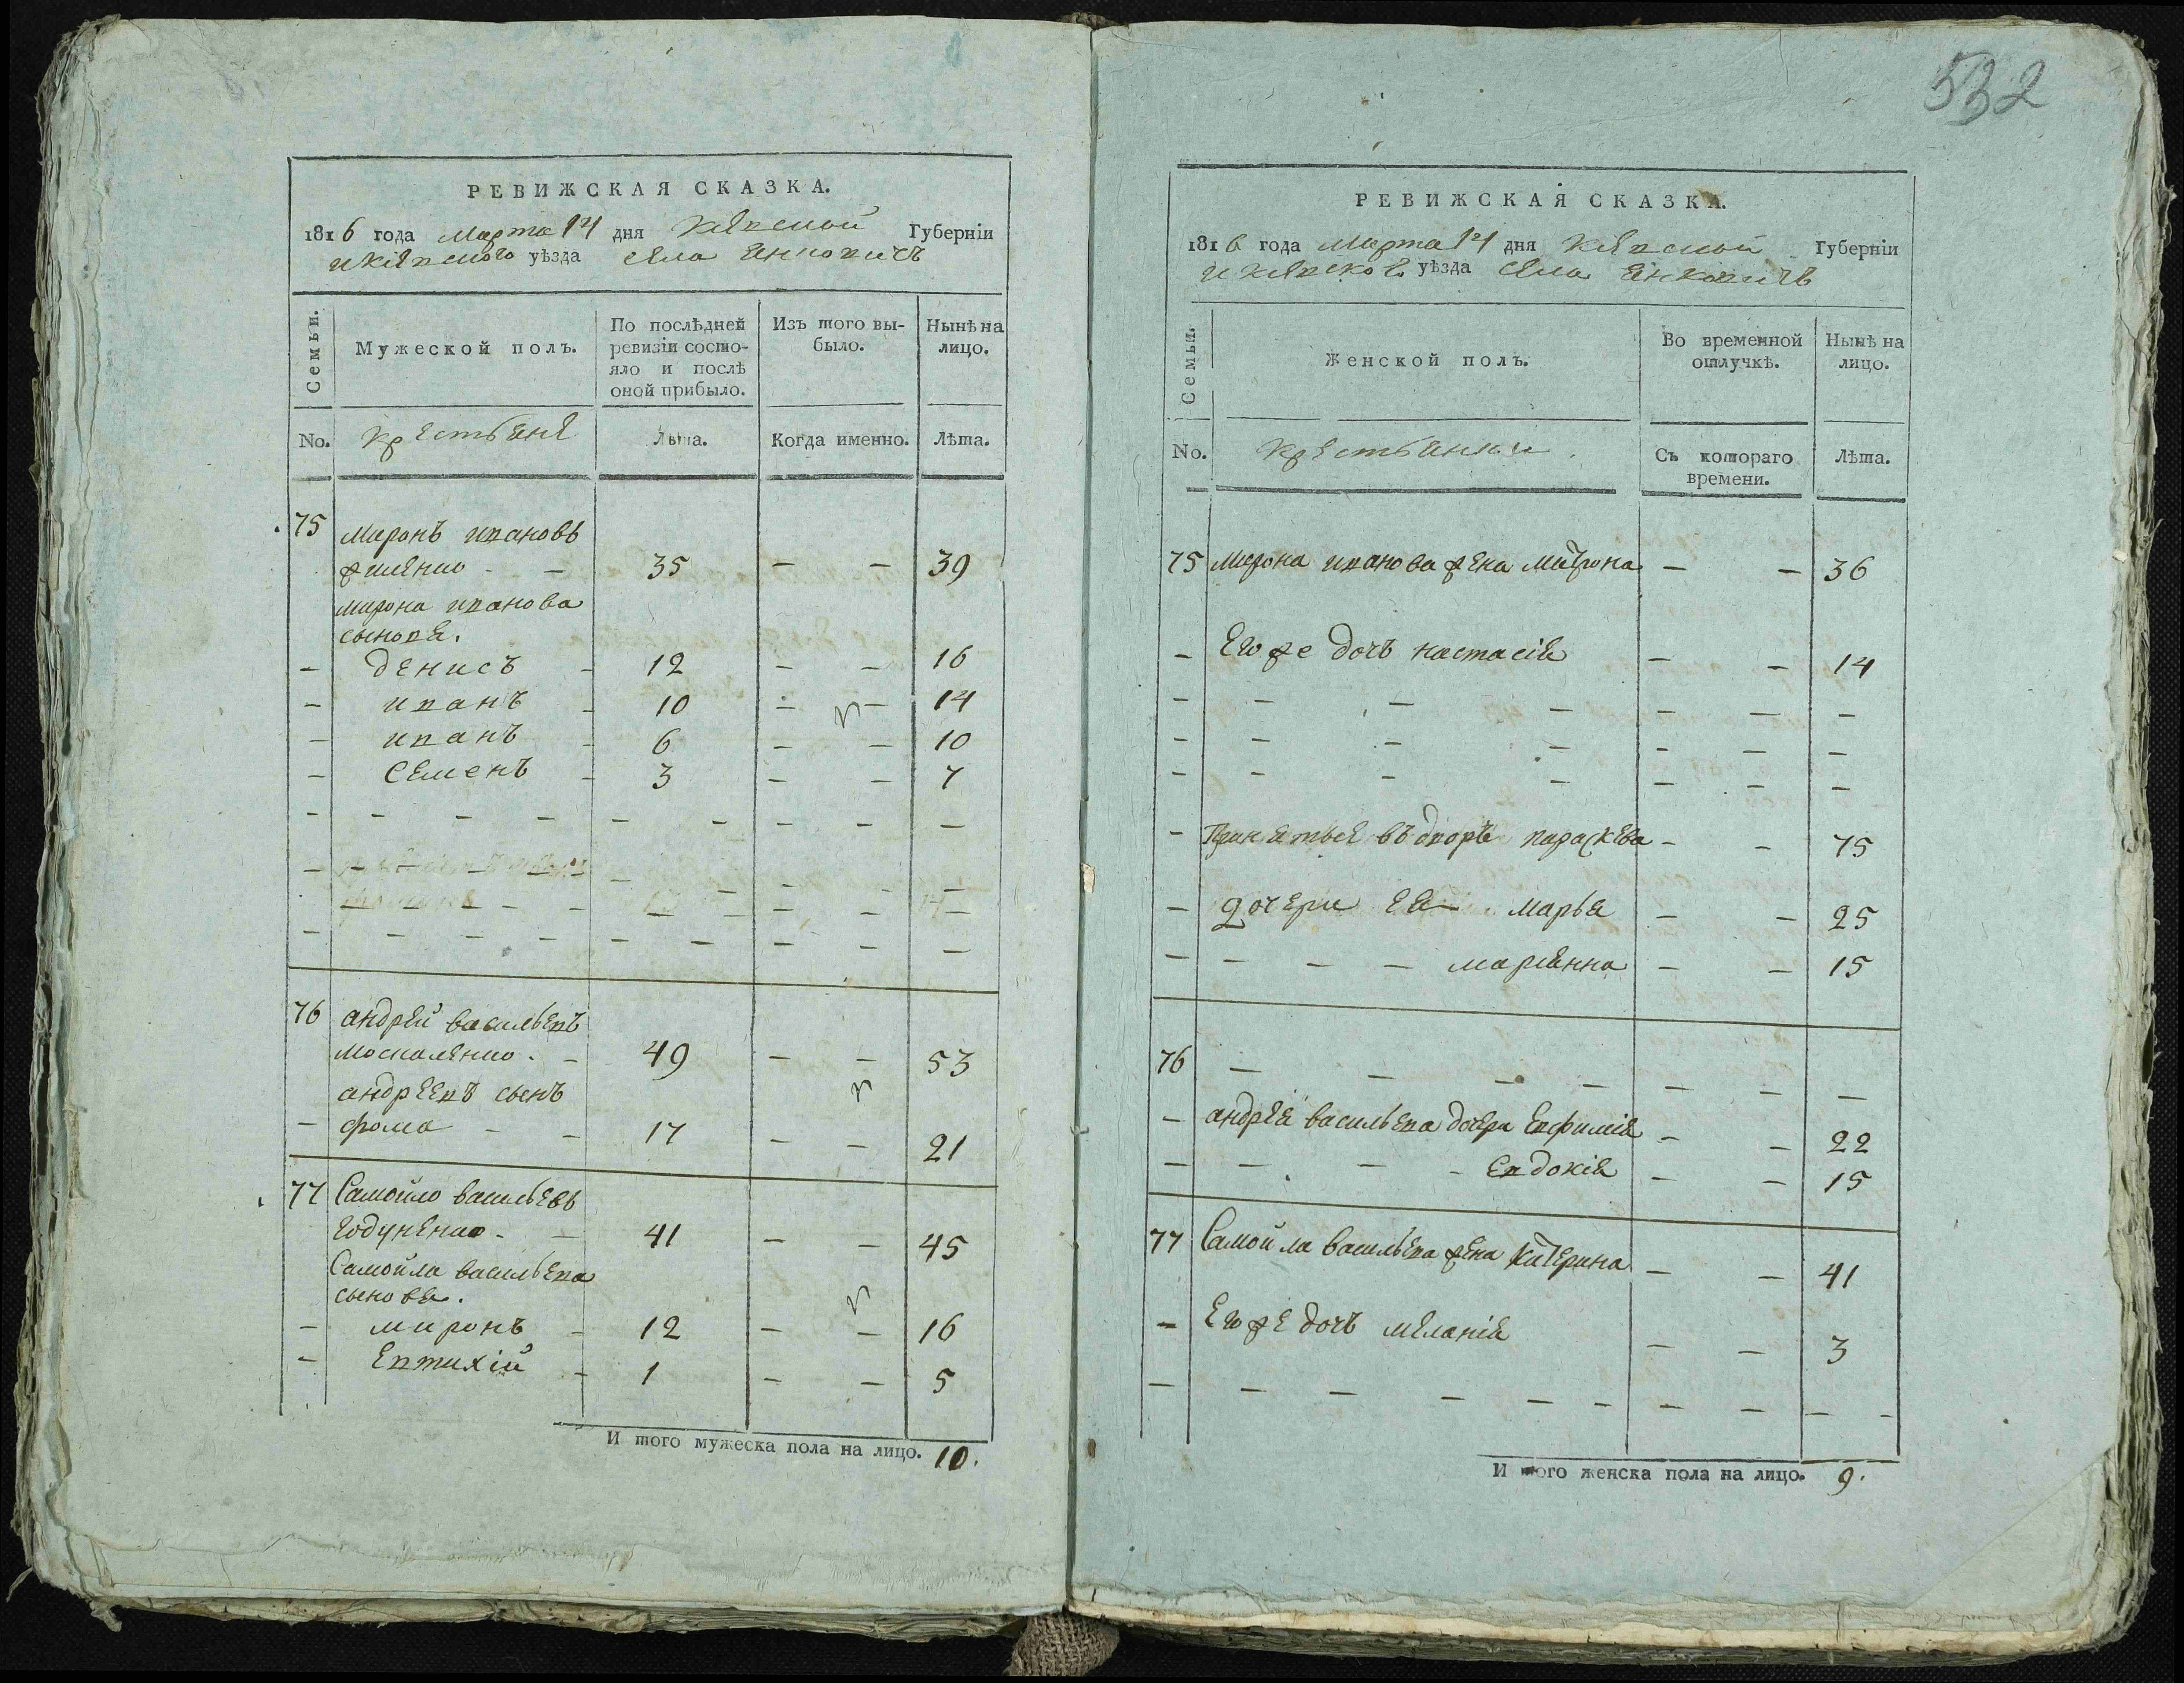 532
РЕВИЖСКАЯ СКАЗКА.
1816 года Марта 14 дня Кіевской Губерніи
и Кіевского уѣзда села Янковичъ
Семьи.
Мужеской полъ.
По послѣдней ревизіи состояло и послѣ оной прибыло.
Изъ того выбыло.
Нынѣ на лицо.
No. крестьяне Лѣта. Когда именно. Лѣта.
75 Миронъ Ивановъ
35 — — 39
Мирона Иванова
сыновя.
— Денисъ - 12 — — 16
— Иванъ - 10 — — 14
— Иванъ - 6 — — 10
— Семенъ - 3 — — 7
76 Андрей Васильевъ
Москаленко. - 49 — — 53
Андреевъ сынъ
— Фома - - 17 — — 21
77 Самойло Васильевъ
Годуненко. - 41 — — 45
Самойла Васильева
сыновя.
— Миронъ - 12 — — 16
— Евтихій - 1 — — 5
И того мужеска пола на лицо. 10.
РЕВИЖСКАЯ СКАЗКА.
1816 года Марта 14 дня Кіевской Губерніи
и Кіевского уѣзда села Янковичъ
Семьи.
Женской полъ.
Во временной отлучкѣ.
Нынѣ на лицо.
No. крестьянки. Съ котораго времени. Лѣта.
75 Мирона Иванова жена Матрона — — 36
— Его же дочъ Настасія — — 14
— Принятыя въ дворъ Параскева - - 75
— Дочери ея — Марья — — 25
— — — — Маріянна — — 15
76 — — — — — — —
— Андрея Васильева дочери Евфимія — — 22
— — — - Евдокія — — 15
77 Самойла Васильева жена Катерина — — 41
— Его же дочъ Меланія — — 3
И того женска пола на лицо. 9.